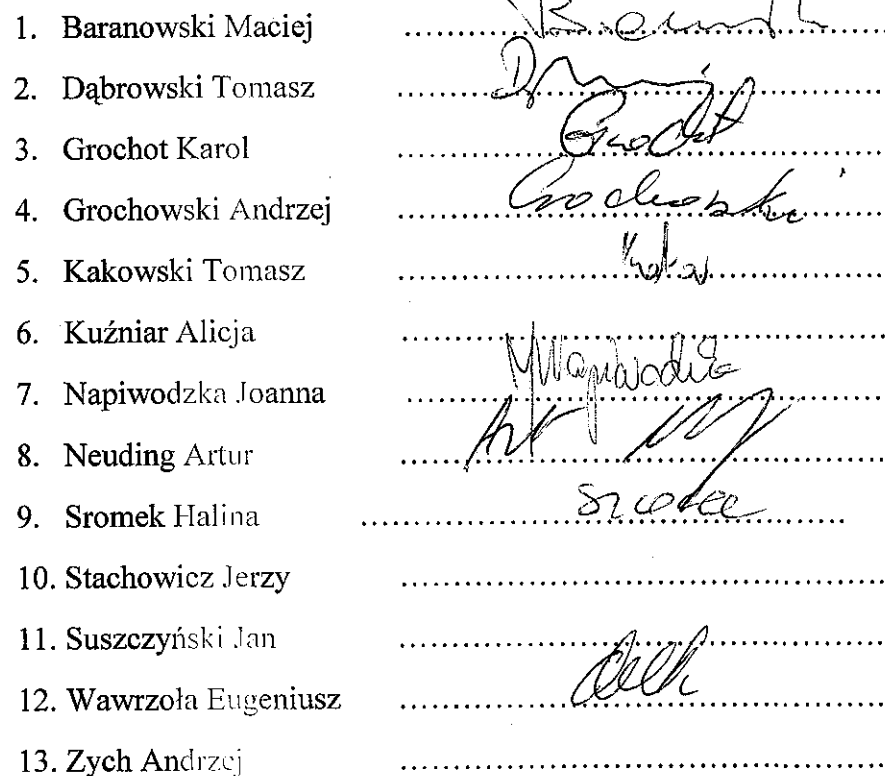 1. Baranowski Maciej ........................................
2. Dąbrowski Tomasz ........................................
3. Grochot Karol ........................................ Grochot
4. Grochowski Andrzej ........................................ Grochowski
5. Kakowski Tomasz ........................................
6. Kuźniar Alicja ........................................
7. Napiwodzka Joanna ........................................ Napiwodzka
8. Neuding Artur ........................................ Art
9. Sromek Halina ........................................
10. Stachowicz Jerzy ........................................
11. Suszczyński Jan ........................................
12. Wawrzoła Eugeniusz ........................................
13. Zych Andrzej ........................................